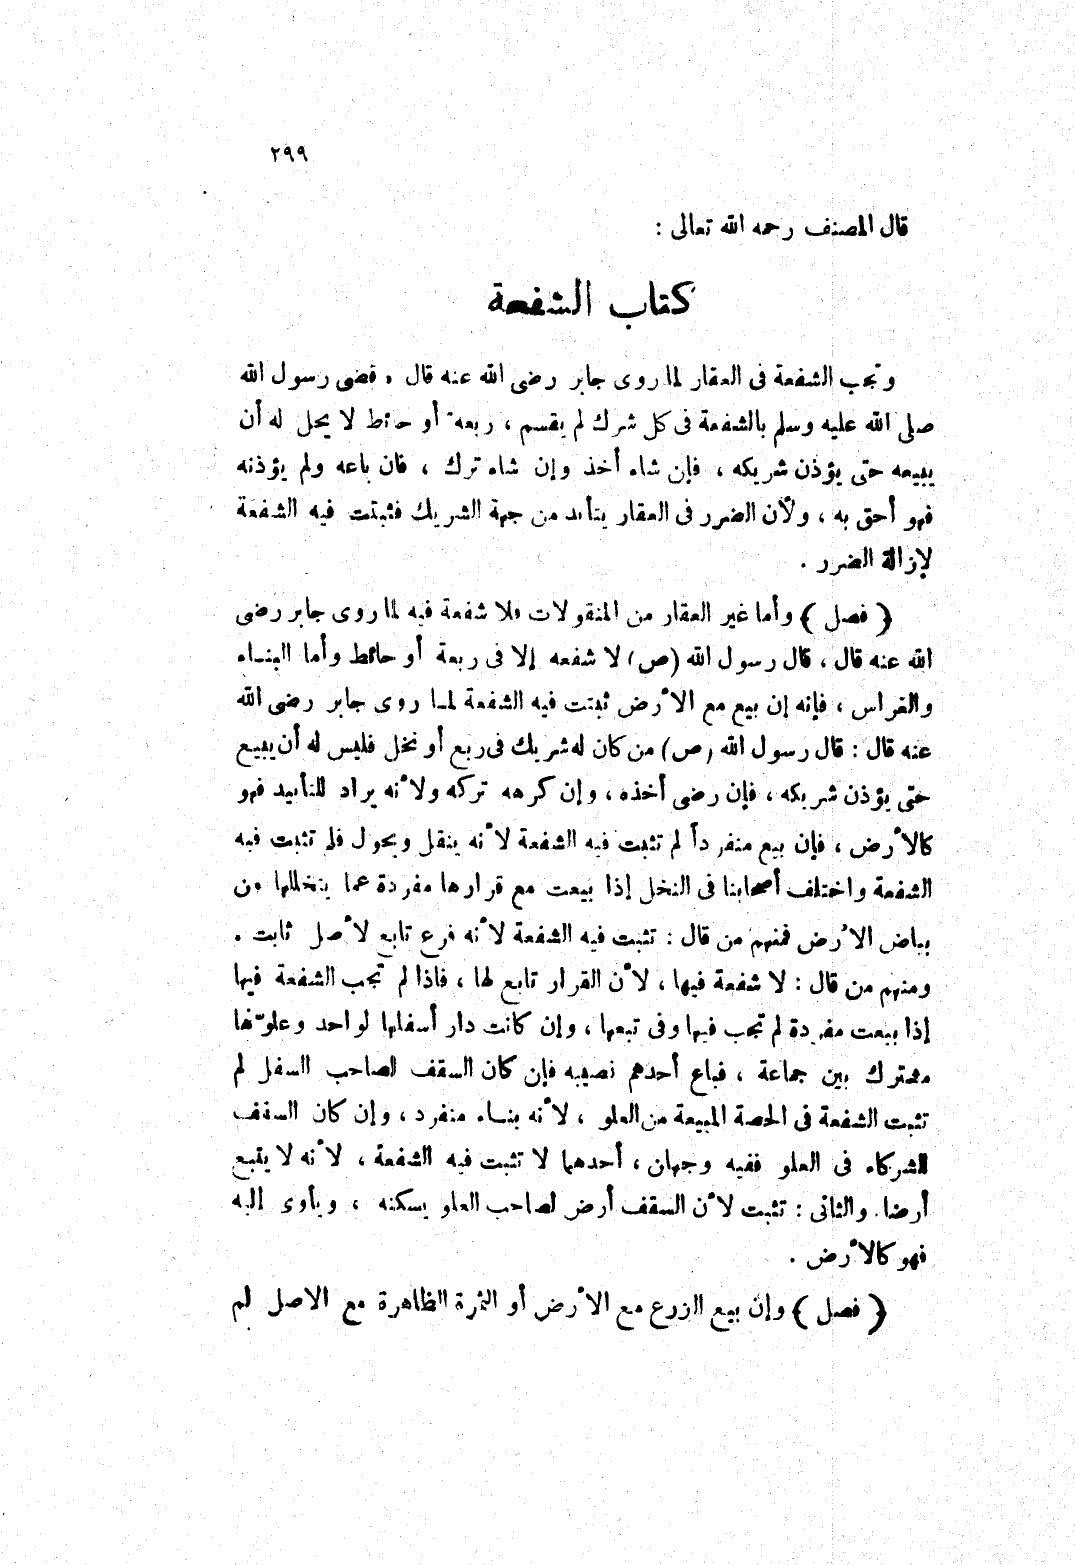 ٢٩٩
قال المصنف رحمه الله تعالى :
كتاب الشفعة
وتجب الشفعة فى العقار لما روى جابر رضى الله عنه قال ، قضى رسول الله
صلى الله عليه وسلم بالشفعة فى كل شرك لم يقسم ، ربعة أو حائط لا يحل له أن
يبيعه حتى يؤذن شريكه ، فإن شاء أخذ وإن شاء ترك ، فان باعه ولم يؤذنه
فهو أحق به ، ولأن الضرر فى العقار يتأبد من جهة الشريك فثبتت فيه الشفعة
لإزالة الضرر .
( فصل ) وأما غير العقار من المنقولات فلا شفعة فيه لما روى جابر رضى
الله عنه قال ، قال رسول الله (ص) لا شفعه إلا فى ربعة أو حائط وأما البناء
والغراس ، فإنه إن بيع مع الأرض ثبتت فيه الشفعة لما روى جابر رضى الله
عنه قال : قال رسول الله (ص) من كان له شريك فى ربع أو نخل فليس له أن يبيع
حتى يؤذن شريكه ، فإن رضى أخذه ، وإن كرهه تركه ولأنه يراد للتأبيد فهو
كالأرض ، فإن بيع منفرداً لم تثبت فيه الشفعة لأنه ينقل ويحول فلم تثبت فيه
الشفعة واختلف أصحابنا فى النخل إذا بيعت مع قرارها مفردة عما يتخللها من
بياض الأرض فمنهم من قال : تثبت فيه الشفعة لأنه فرع تابع لأصل ثابت .
ومنهم من قال : لا شفعة فيها ، لأن القرار تابع لها ، فاذا لم تجب الشفعة فيها
إذا بيعت مفردة لم تجب فيها وفى تبعها ، وإن كانت دار أسفلها لواحد وعلوها
مشترك بين جماعة ، فباع أحدهم نصيبه فإن كان السقف لصاحب السفل لم
تثبت الشفعة فى الحصة المبيعة من العلو ، لأنه بناء منفرد ، وإن كان السقف
للشركاء فى العلو ففيه وجهان ، أحدهما لا تثبت فيه الشفعة ، لأنه لا يتبع
أرضا . والثانى : تثبت لأن السقف أرض لصاحب العلو يسكنه ، ويأوى إليه
فهو كالأرض .
( فصل ) وإن بيع الزرع مع الأرض أو الثمرة الظاهرة مع الاصل لم